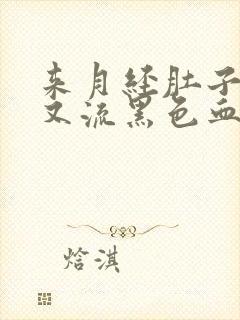 来月经肚子
又流黑色血
焓淇